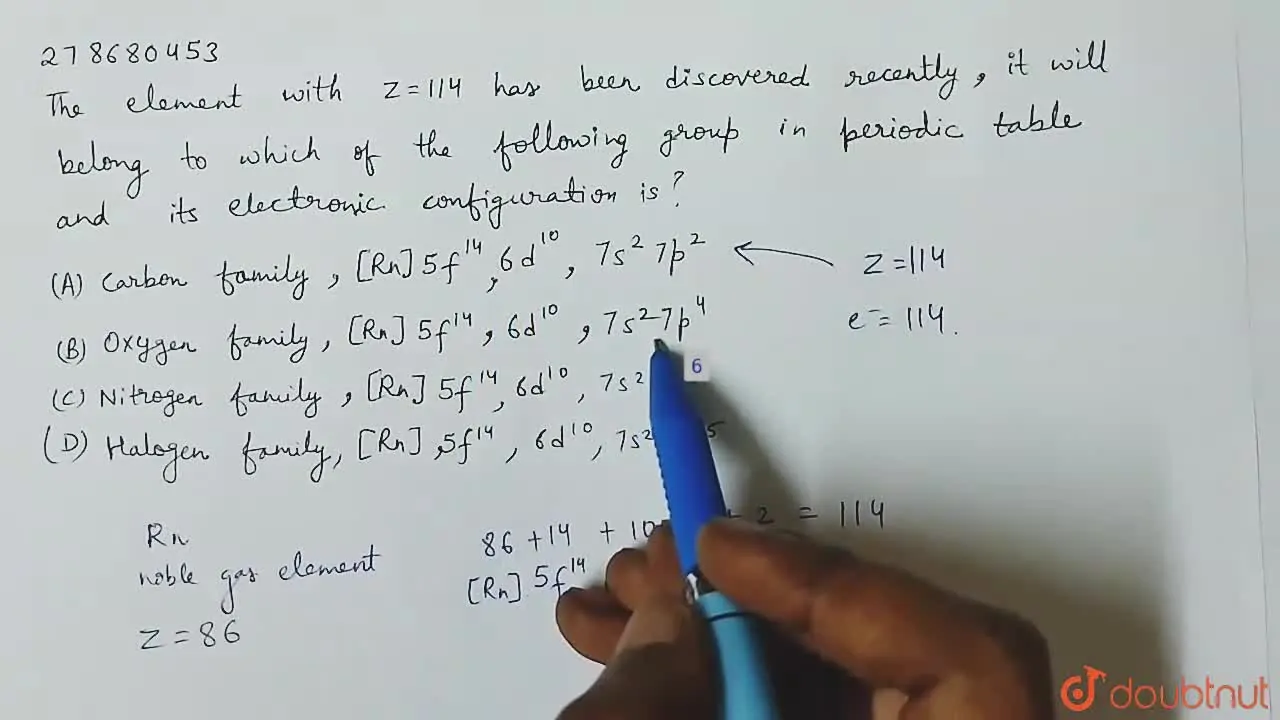 278680453
The element with Z=114 has been discovered recently, it will
belong to which of the following group in periodic table
and its electronic configuration is?
(A) Carbon family, [Rn] 5f¹⁴, 6d¹⁰, 7s² 7p²
Z=114
(B) Oxygen family, [Rn] 5f¹⁴, 6d¹⁰, 7s² 7p⁴
e⁻= 114.
6
(C) Nitrogen family, [Rn] 5f¹⁴, 6d¹⁰, 7s²
(D) Halogen family, [Rn], 5f¹⁴, 6d¹⁰, 7s² 5
Rn
86 + 14 + 10 2 = 114
noble gas element
[Rn] 5f¹⁴
Z=86
doubtnut